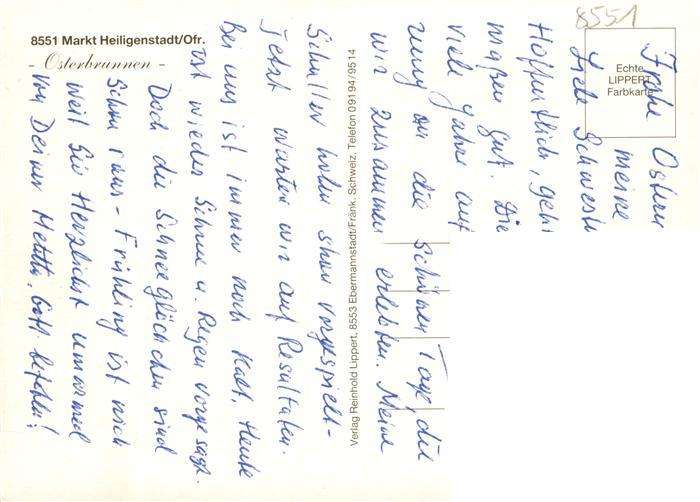 8551 Markt Heiligenstadt/Ofr.
- Osterbrunnen -
Verlag Reinhold Lippert, 8553 Ebermannstadt/Fränk. Schweiz, Telefon 09194/9514
Echte
LIPPERT
Farbkarte
8551
Frohe Ostern
meine
liebe Schwest
Hoffentlich, geht
maßen gut. Die
viele Jahre auf
rung an die schönen Tage, die
wir zusammen erlebten. Meine
Schüler haben schon vorgespielt -
Jetzt warten wir auf Resultaten.
Bei uns ist immer noch kalt, Heute
ist wieder Schnee u. Regen vorgesagt.
Doch die Schneeglöckchen sind
schon raus - Frühling ist nich
weit Sei Herzlichst umarmed
von Deiner Gott befohlen!